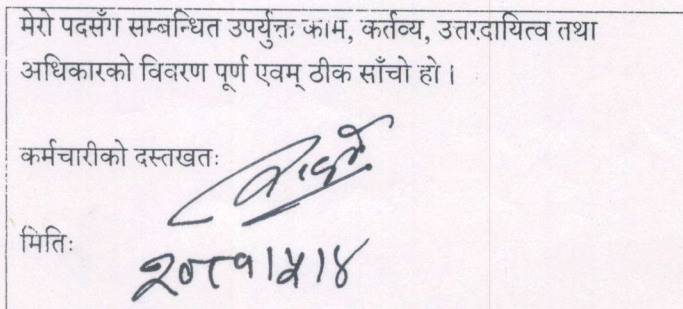 मेरो पदसँग सम्बन्धित उपर्युक्त काम, कर्तव्य, उत्तरदायित्व तथा
अधिकारको विवरण पूर्ण एवम् ठीक साँचो हो ।
कर्मचारीको दस्तखतः
मितिः
२०८१।५।४